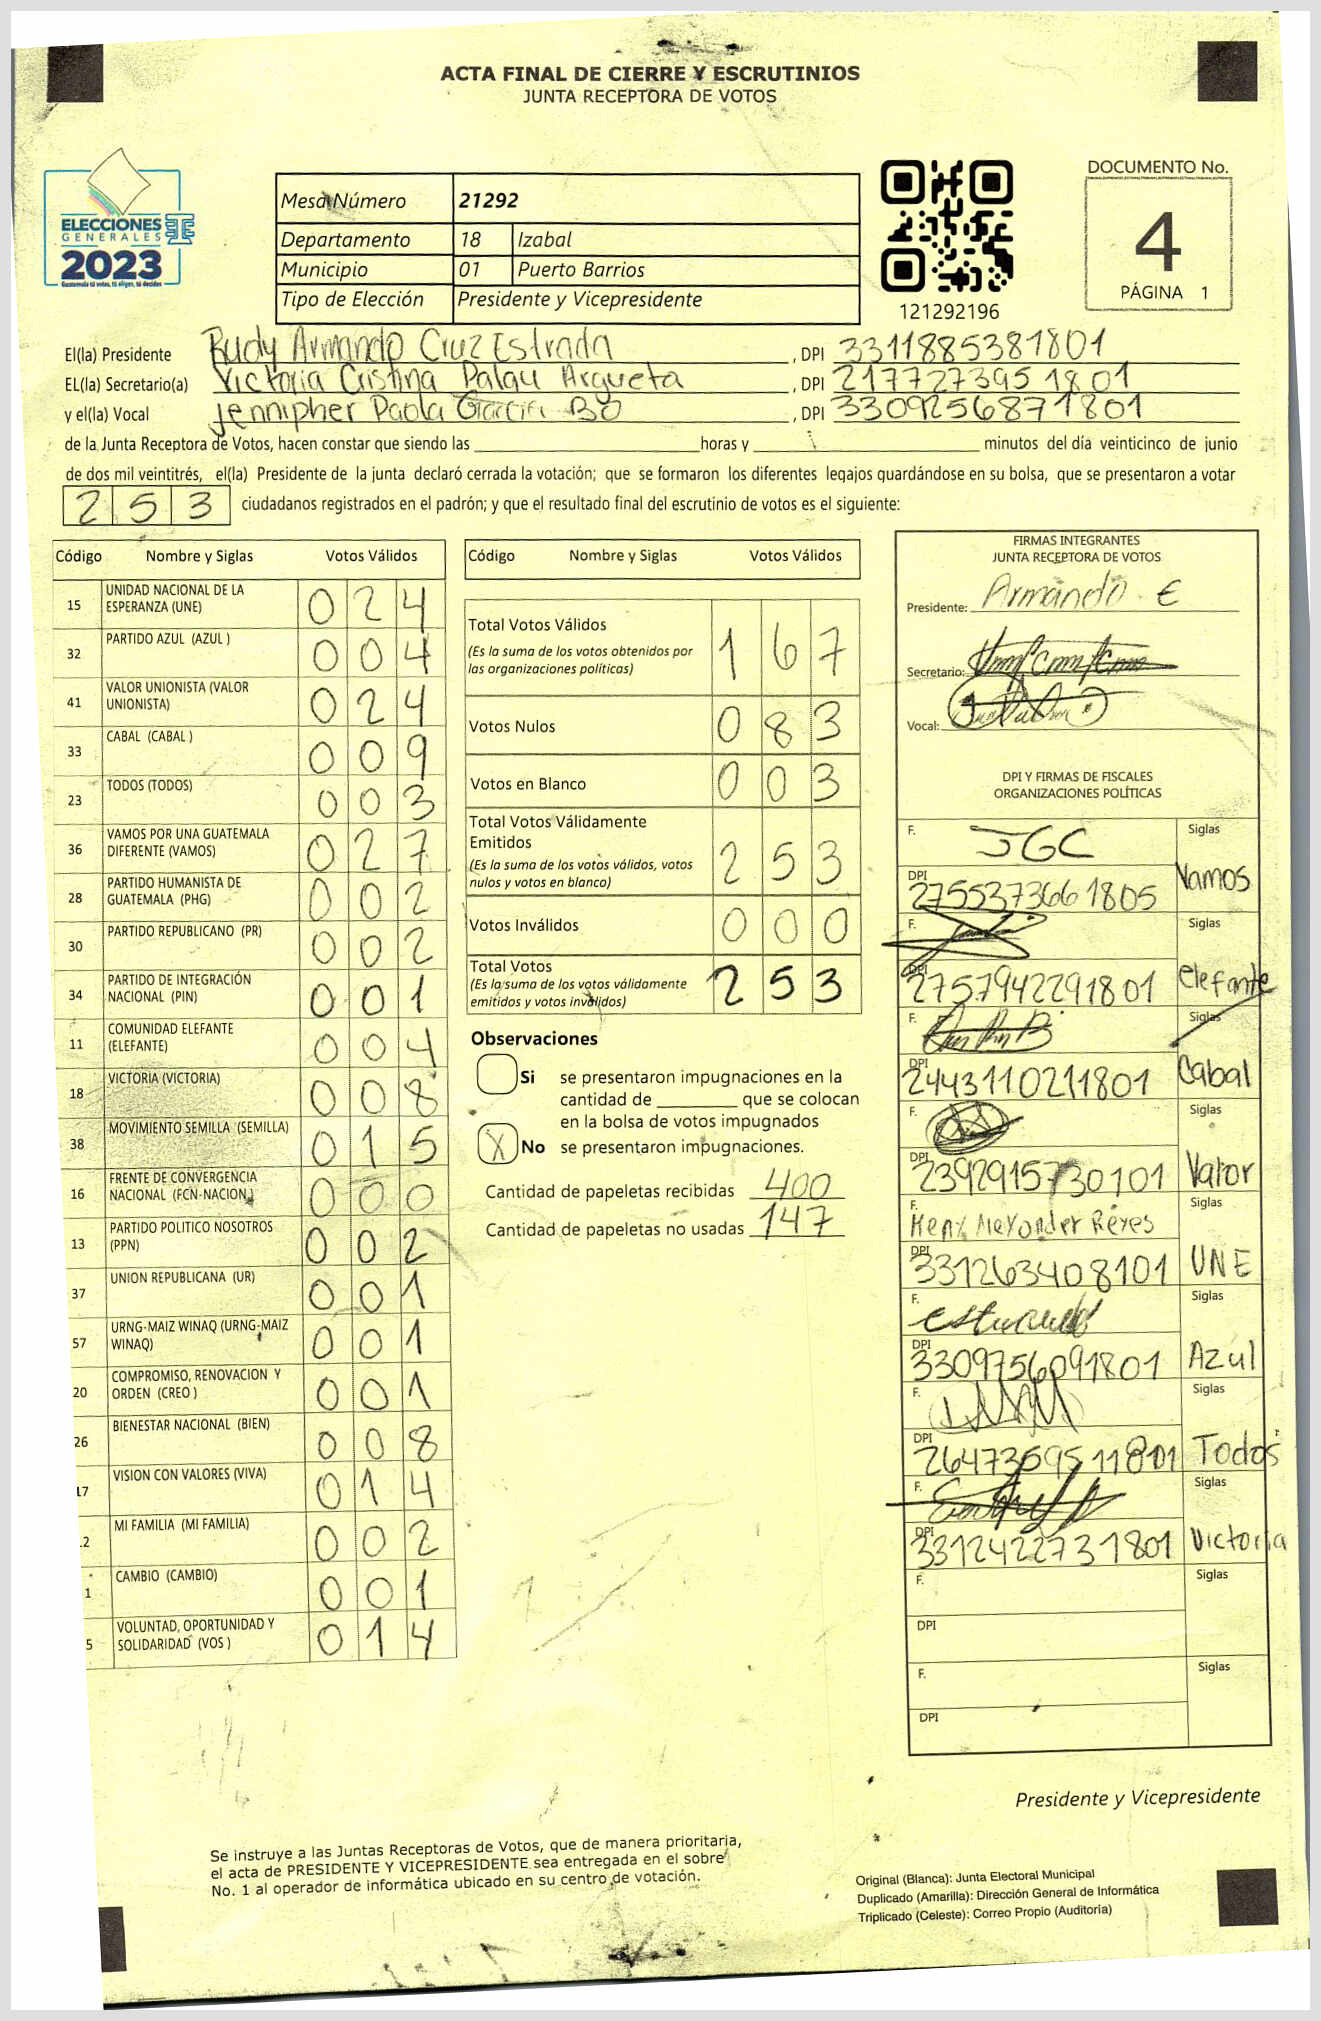 ACTA FINAL DE CIERRE Y ESCRUTINIOS
JUNTA RECEPTORA DE VOTOS
ELECCIONES
GENERALES
2023
Guatemala tú votas, tú eliges, tú decides
Mesa Número 21292
Departamento 18 Izabal
Municipio 01 Puerto Barrios
Tipo de Elección Presidente y Vicepresidente
121292196
DOCUMENTO No.
4
PÁGINA 1
El(la) Presidente Rudy Armando Cruz Estrada, DPI 3311885381801
EL(la) Secretario(a) Victoria Cristina Palau Argueta, DPI 2177273951801
y el(la) Vocal Jennipher Paola Garcia BO, DPI 3309256871801
de la Junta Receptora de Votos, hacen constar que siendo las horas y minutos del día veinticinco de junio
de dos mil veintitrés, el(la) Presidente de la junta declaró cerrada la votación; que se formaron los diferentes legajos guardándose en su bolsa, que se presentaron a votar
253 ciudadanos registrados en el padrón; y que el resultado final del escrutinio de votos es el siguiente:
Código Nombre y Siglas Votos Válidos
15 UNIDAD NACIONAL DE LA ESPERANZA (UNE) 024
32 PARTIDO AZUL (AZUL ) 004
41 VALOR UNIONISTA (VALOR UNIONISTA) 024
33 CABAL (CABAL ) 009
23 TODOS (TODOS) 003
36 VAMOS POR UNA GUATEMALA DIFERENTE (VAMOS) 027
28 PARTIDO HUMANISTA DE GUATEMALA (PHG) 002
30 PARTIDO REPUBLICANO (PR) 002
34 PARTIDO DE INTEGRACIÓN NACIONAL (PIN) 001
11 COMUNIDAD ELEFANTE (ELEFANTE) 004
18 VICTORIA (VICTORIA) 008
38 MOVIMIENTO SEMILLA (SEMILLA) 015
16 FRENTE DE CONVERGENCIA NACIONAL (FCN-NACION) 000
13 PARTIDO POLITICO NOSOTROS (PPN) 002
37 UNION REPUBLICANA (UR) 001
57 URNG-MAIZ WINAQ (URNG-MAIZ WINAQ) 001
20 COMPROMISO, RENOVACION Y ORDEN (CREO ) 001
26 BIENESTAR NACIONAL (BIEN) 008
17 VISION CON VALORES (VIVA) 014
2 MI FAMILIA (MI FAMILIA) 002
1 CAMBIO (CAMBIO) 001
5 VOLUNTAD, OPORTUNIDAD Y SOLIDARIDAD (VOS ) 014
Código Nombre y Siglas Votos Válidos
Total Votos Válidos 167
(Es la suma de los votos obtenidos por
las organizaciones políticas)
Votos Nulos 083
Votos en Blanco 003
Total Votos Válidamente
Emitidos 253
(Es la suma de los votos válidos, votos
nulos y votos en blanco)
Votos Inválidos 000
Total Votos 253
(Es la suma de los votos válidamente
emitidos y votos inválidos)
Observaciones
Si se presentaron impugnaciones en la
cantidad de que se colocan
en la bolsa de votos impugnados
X No se presentaron impugnaciones.
Cantidad de papeletas recibidas 400
Cantidad de papeletas no usadas 147
FIRMAS INTEGRANTES
JUNTA RECEPTORA DE VOTOS
Presidente: Armando E
Secretario:
Vocal:
DPI Y FIRMAS DE FISCALES
ORGANIZACIONES POLÍTICAS
F. JGC Siglas
DPI 2755373661805 Vamos
F. Siglas
DPI 2757942291801 elefante
F. Siglas
DPI 2443110211801 Cabal
F. Siglas
DPI 2392915730101 Valor
F. Reyes Siglas
DPI 331263408101 UNE
F. Siglas
DPI 3309756091801 Azul
F. Siglas
DPI Todos
F. Siglas
DPI 3312422731801 Victoria
F. Siglas
DPI
F. Siglas
DPI
Presidente y Vicepresidente
Se instruye a las Juntas Receptoras de Votos, que de manera prioritaria,
el acta de PRESIDENTE Y VICEPRESIDENTE sea entregada en el sobre
No. 1 al operador de informática ubicado en su centro de votación.
Original (Blanca): Junta Electoral Municipal
Duplicado (Amarilla): Dirección General de Informática
Triplicado (Celeste): Correo Propio (Auditoría)